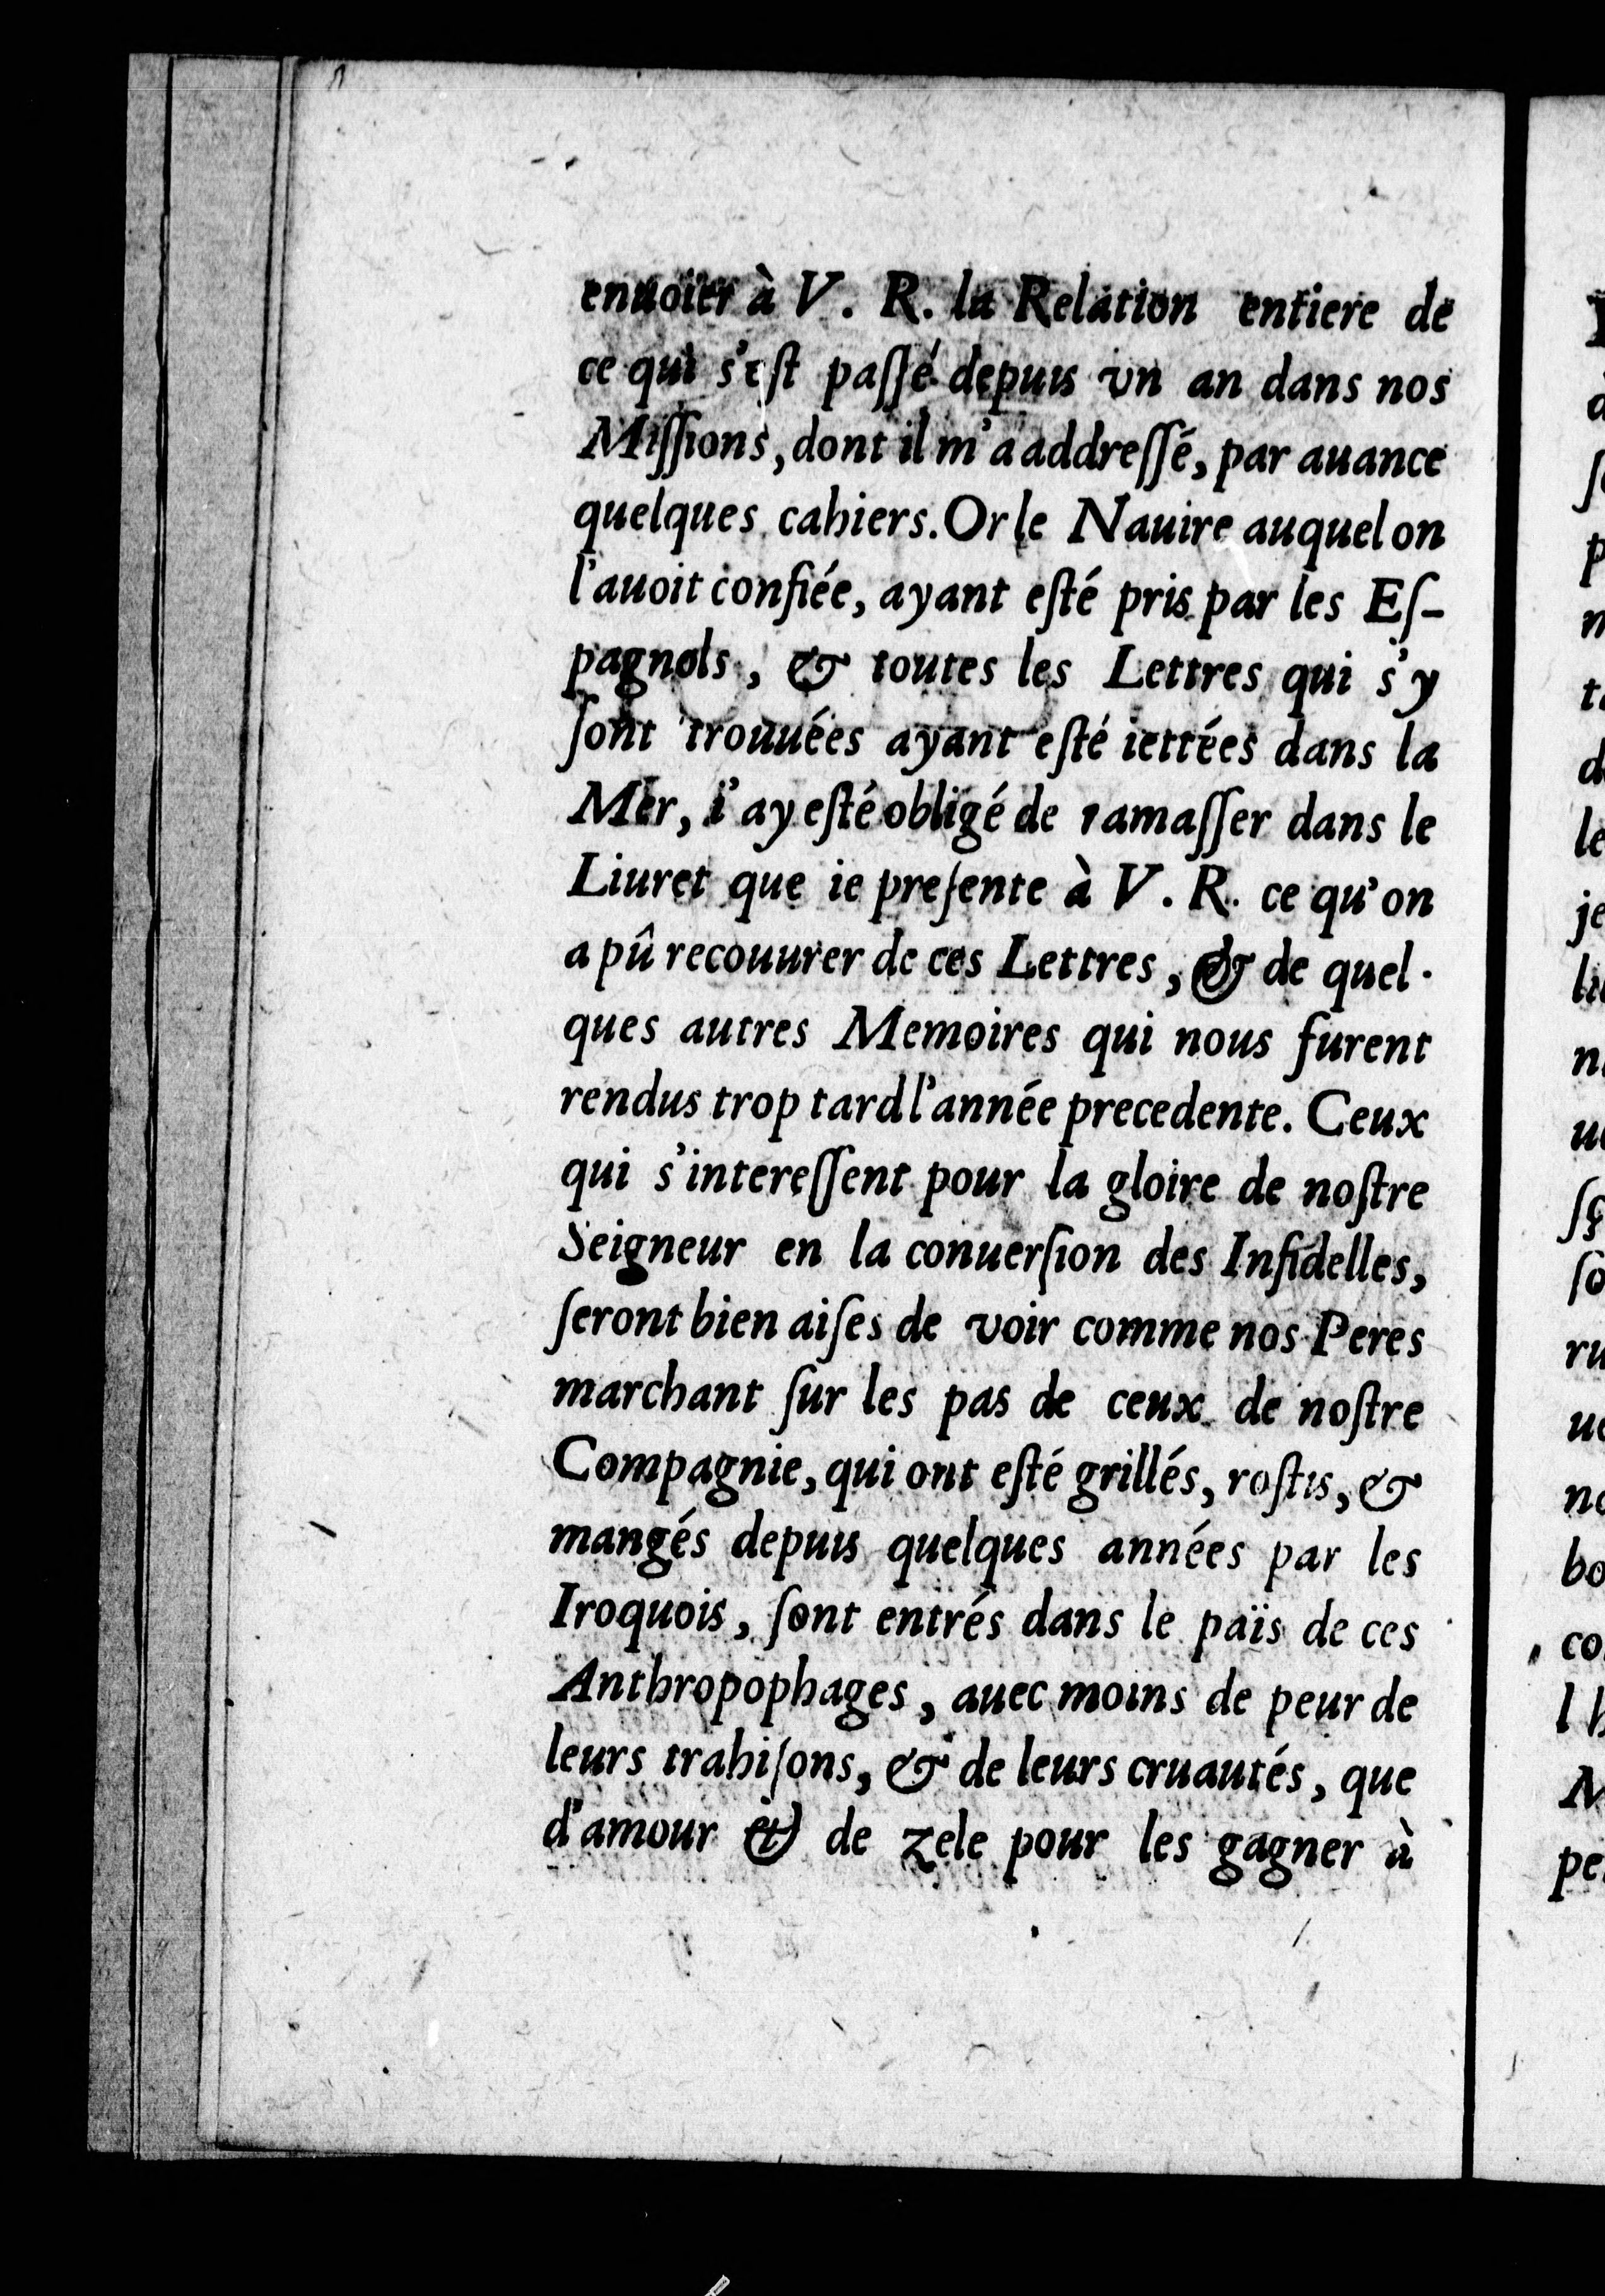 enuoïer à V. R. la Relation entiere de
ce qui s'eſt paſſé depuis vn an dans nos
Miſſions, dont il m'a addreſſé, par auance
quelques cahiers. Or le Nauire auquel on
l'auoit confiée, ayant eſté pris par les Eſ-
pagnols, & toutes les Lettres qui s'y
ſont trouuées ayant eſté iettées dans la
Mer, i'ay eſté obligé de ramaſſer dans le
Liuret que ie preſente à V. R. ce qu'on
a pû recouurer de ces Lettres, & de quel-
ques autres Memoires qui nous furent
rendus trop tard l'année precedente. Ceux
qui s'intereſſent pour la gloire de noſtre
Seigneur en la conuerſion des Infidelles,
ſeront bien aiſes de voir comme nos Peres
marchant ſur les pas de ceux de noſtre
Compagnie, qui ont eſté grillés, roſtis, &
mangés depuis quelques années par les
Iroquois, ſont entrés dans le païs de ces
Anthropophages, auec moins de peur de
leurs trahiſons, & de leurs cruautés, que
d'amour & de zele pour les gagner à